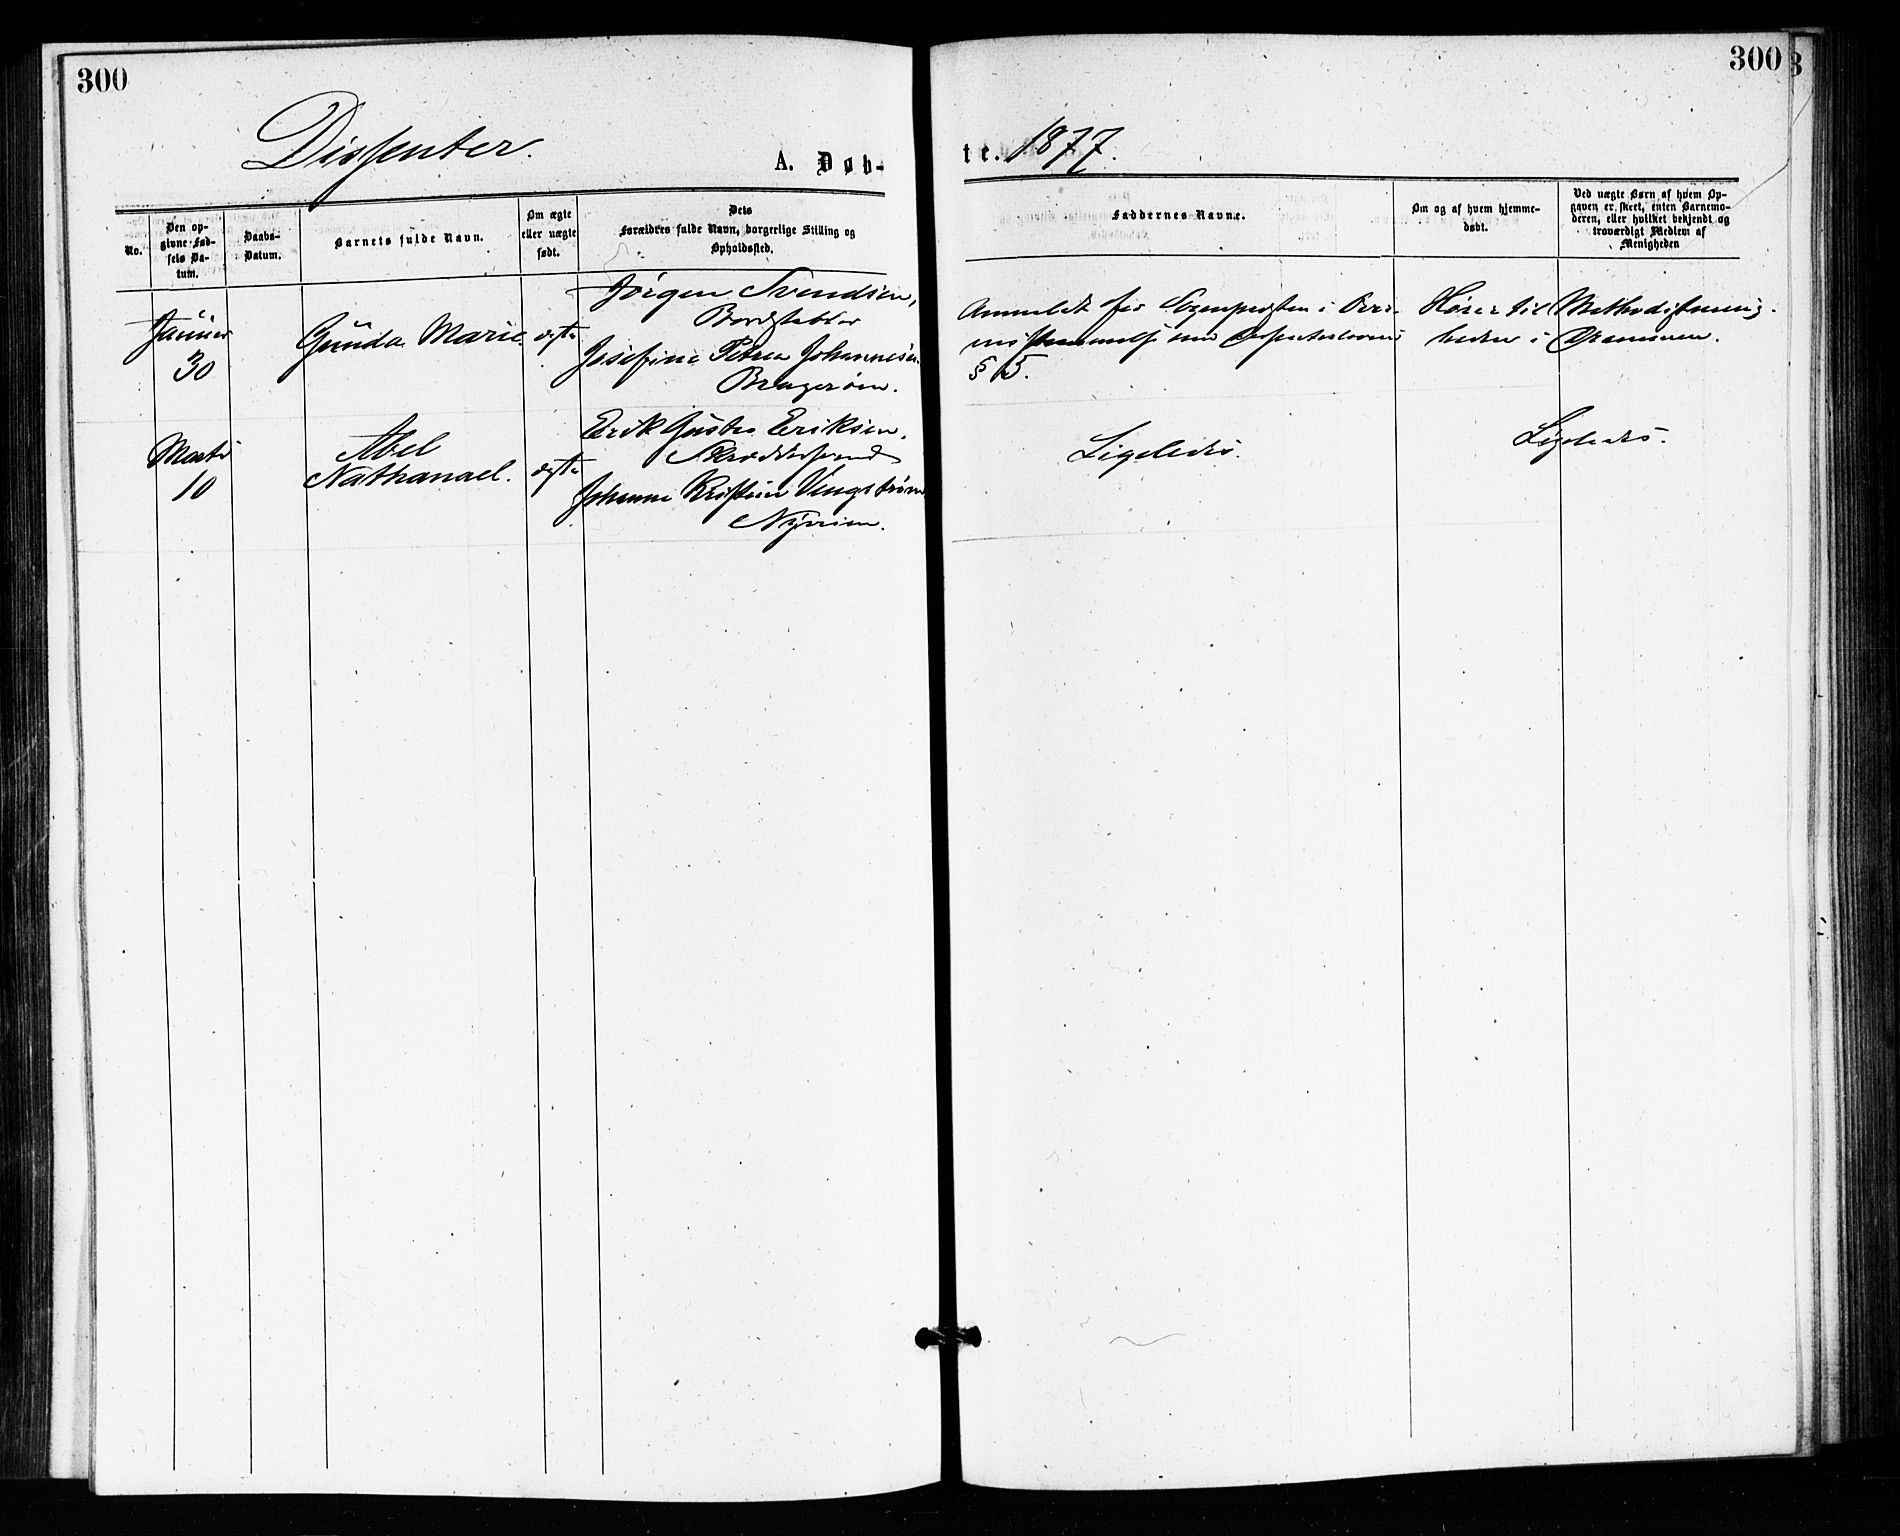 300
Dissenter.
A. Døb-
No.
Den op-
givne Fød-
sels Da-
tum.
Daabs-
Datum.
Barnets fulde Navn.
Om ægte
eller uægte
født.
Dets
Forældres fulde Navn, borgerlige Stilling og
Opholdssted.
Januar
30
Gunda Marie
ægte
Jörgen Svendsen,
Bordstabler
Josefine Petrea Johannesen.
Bragerøen.
Marts
10
Abel
Nathanael.
ægte
Erik Gustav Eriksen.
Skræddersvend
Johanne Kristine Vengström
Nyveien.
300
te. 1877.
Faddernes Navne.
Om og af hvem hjemme-
døbt.
Ved uægte Børn af hvem Op-
gaven er skeet, enten Barnemo-
deren, eller hvilket bekjendt og
troværdigt Medlem af
Menigheden
Anmeldt for Sognepresten i Over-
ensstemmelse med Dissenterlovens
§ 15.
Hører til Methodistmenig-
heden i Drammen.
Ligeledes.
Ligeledes.